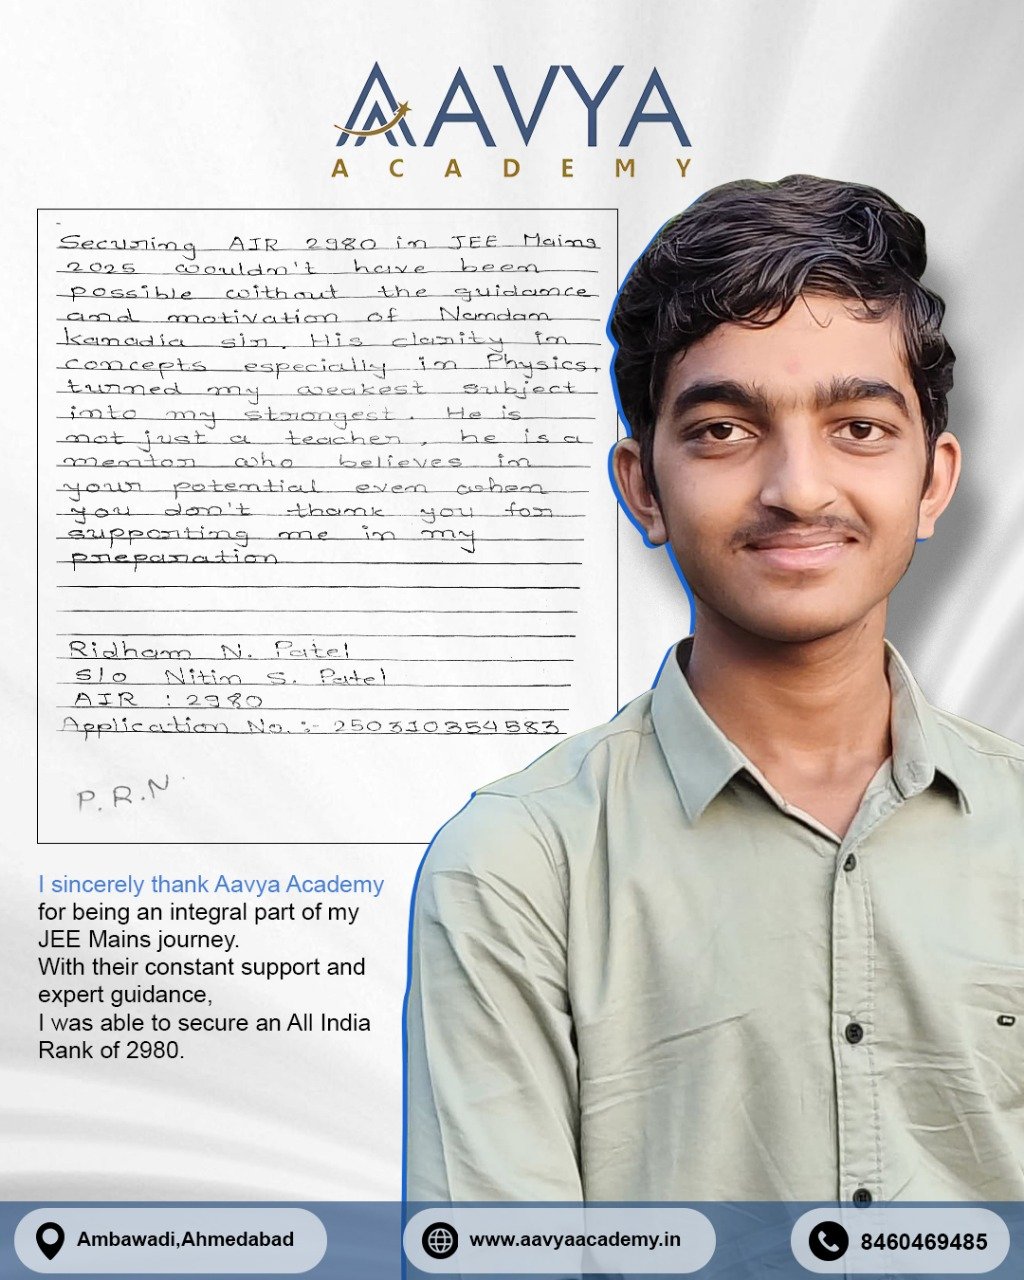 AAVYA
ACADEMY
Securing AIR 2980 in JEE Mains
2025 wouldn't have been
possible without the guidance
and motivation of Nandan
kanadia sir. His clarity in
concepts especially in Physics,
turned my weakest subject
into my strongest. He is
not just a teacher, he is a
mentor who believes in
your potential even when
you don't thank you for
supporting me in my
preparation
Ridham N. Patel
S/o Nitin S. Patel
AIR : 2980
Application No. :- 250310354583
P.R.N
I sincerely thank Aavya Academy
for being an integral part of my
JEE Mains journey.
With their constant support and
expert guidance,
I was able to secure an All India
Rank of 2980.
Ambawadi,Ahmedabad
www.aavyaacademy.in
8460469485